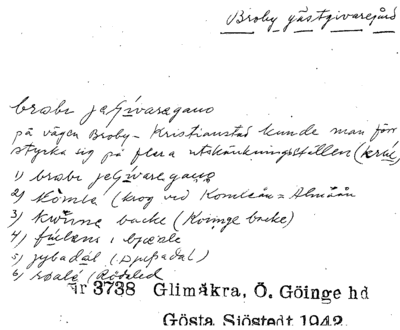 Broby gästgivaregård
brobi jeGivaregano
på vägen Broby - Kristianstad kunde man förr
styrka sig på flera utskänkningsställen (krú)
1) brobi jeGivaregano
2) Kômla (krog vid Komlaån = Almaån
3) kwinne backe (Kvinge backe)
4) fúlani i bjæle
5) jybadál (Djupadal)
6) roalé (Rödaled
ır 3738 Glimåkra, Ö. Göinge hd
Gösta Sjöstedt 1942.